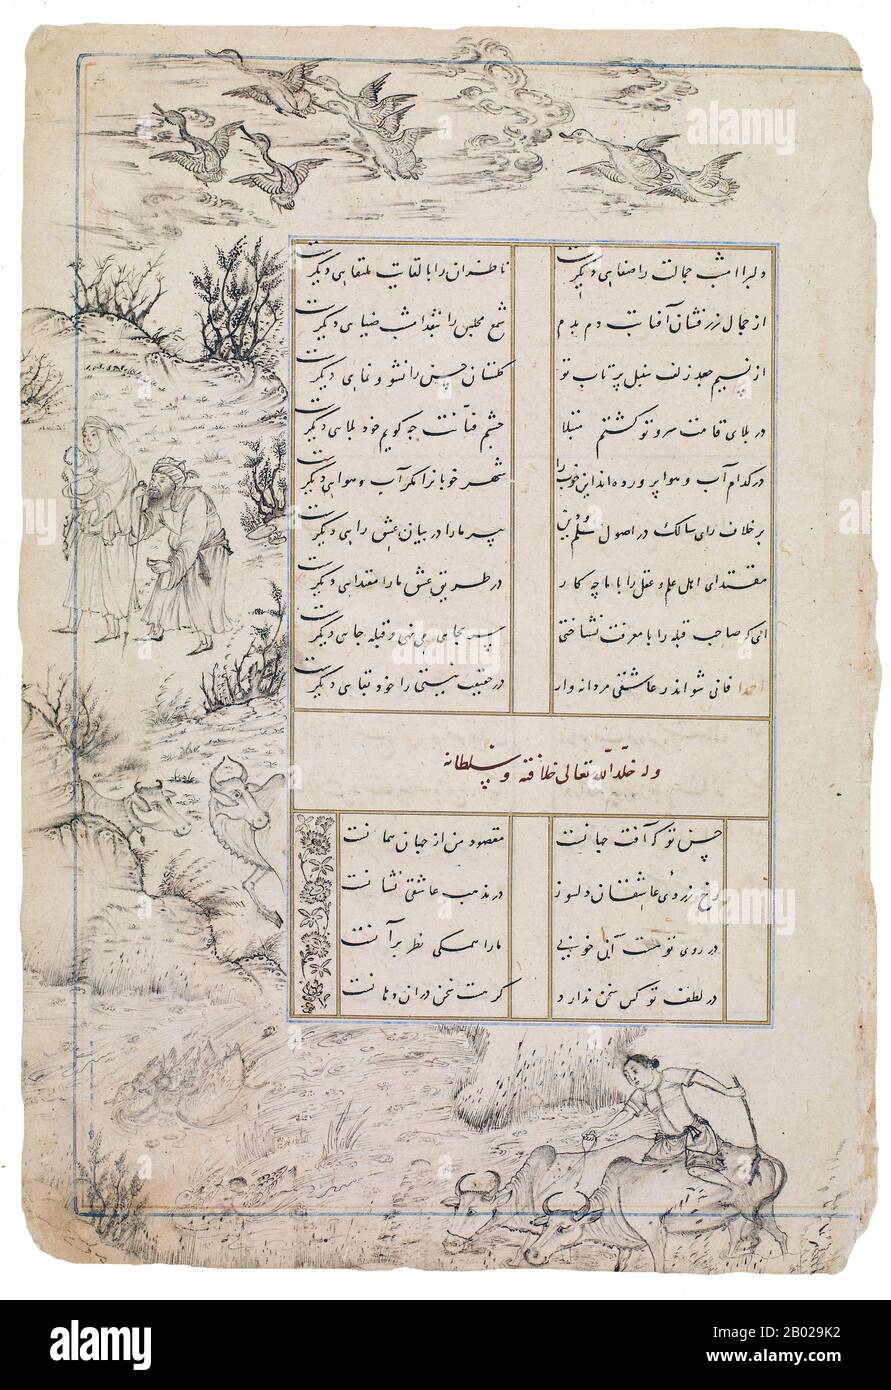 دلبرا امشب جمالت را صفای دیگرست ناظران را با لقایت ملتقای دیگرست
از جمال زرفشان آفتابت دم بدم شمع مجلس را بتقدامشب ضیای دیگرست
از نسیم جعد زلف سنبل پرتاب تو گلستان چین را نشو و نمای دیگرست
در بلای قامت سرو تو گشتم مبتلا چشم فتانت چه گویم خود بلای دیگرست
در کدام آب و هوا پرورده اند این خوب را شهر خوبانرا مگر آب و هوای دیگرست
بر خلاف رای سالک در اصول علم و دین پیر ما را در بیان عشق رای دیگرست
مقتدای اهل علم و عقل را با ما چه کار در طریق عشق ما را مقتدای دیگرست
ای که صاحب قبله را با معرفت نشناختی پیر بجای می نهی و قبله جای دیگرست
احمدا فانی شو اندر عاشقی مردانه وار در حقیقت نیستی را خود بقای دیگرست
وله خلد الله تعالی خلافته و سلطانه
حسن تو که آفت جهانست مقصود من از جهان همانست
رخ زردی عاشقان دلسوز در مذهب عاشقی نشانست
در روی تو هست آنی خوبی ما را همگی نظر بر آنست
در لطف تو کس سخن ندارد گر هست سخن در آن دهانست
alamy
Image ID: 2B029K2
www.alamy.com